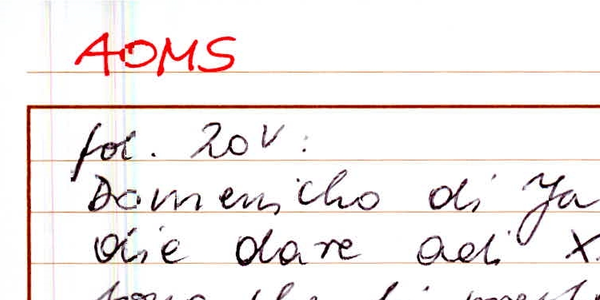 AOMS
fol. 20v:
Domenicho di Ja
die dare adi X